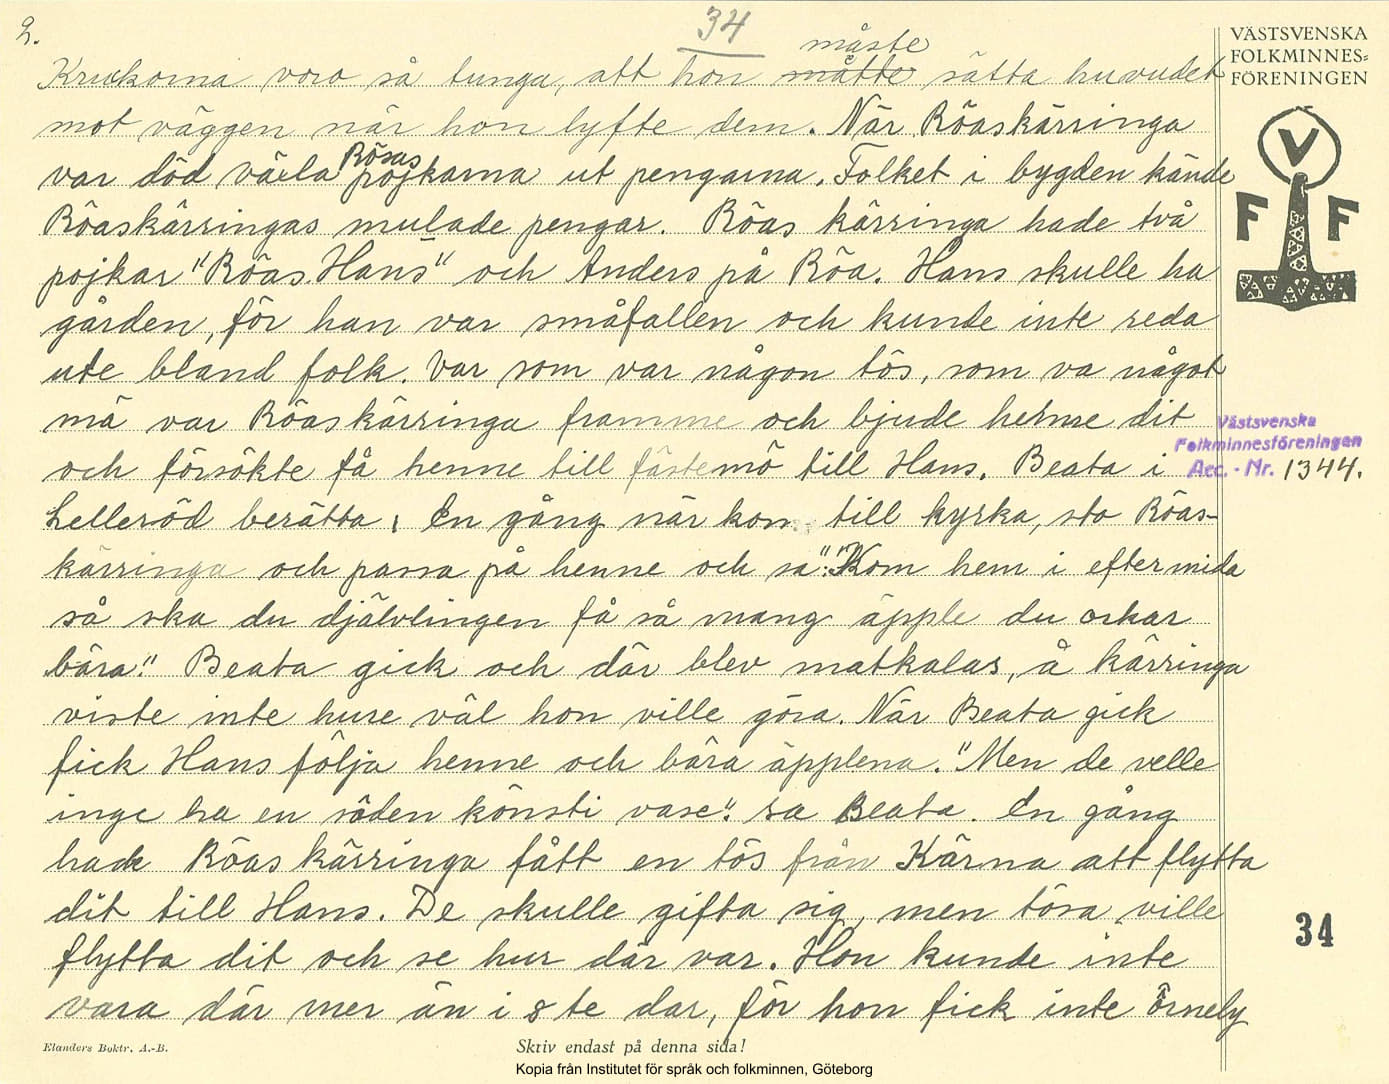 2.
34
måste
Krukorna voro så tunga, att hon måtte sätta huvudet
mot väggen när hon lyfte dem. När Röaskärringa
var död växla Röas pojkarna ut pengarna. Folket i bygden kände
Röaskärringas mulade pengar. Röas kärringa hade två
pojkar "Röas Hans" och Anders på Röa. Hans skulle ha
gården, för han var småfallen och kunde inte reda
ute bland folk. Var som var någon tös, som va något
mä var Röaskärringa framme och bjude henne dit
och försökte få henne till fästemö till Hans. Beata i
Helleröd berätta, En gång när kom till kyrka, sto Röas-
kärringa och passa på henne och sa: "Kom hem i eftermida
så ska du djävlingen få så mang äpple du orkar
bära." Beata gick och där blev matkalas, å kärringa
viste inte hure väl hon ville göra. När Beata gick
fick Hans följa henne och bära äpplena. "Men de velle
inge ha en söden könsti vase." sa Beata. En gång
hade Röas kärringa fått en tös från Kärna att flytta
dit till Hans. De skulle gifta sig, men tösa ville
flytta dit och se hur där var. Hon kunde inte
vara där mer än i 8 te dar, för hon fick inte örnely
VÄSTSVENSKA
FOLKMINNES=
FÖRENINGEN
V
F F
Västsvenska
Folkminnesföreningen
Acc. - Nr. 1344.
34
Elanders Boktr. A.-B.
Skriv endast på denna sida!
Kopia från Institutet för språk och folkminnen, Göteborg